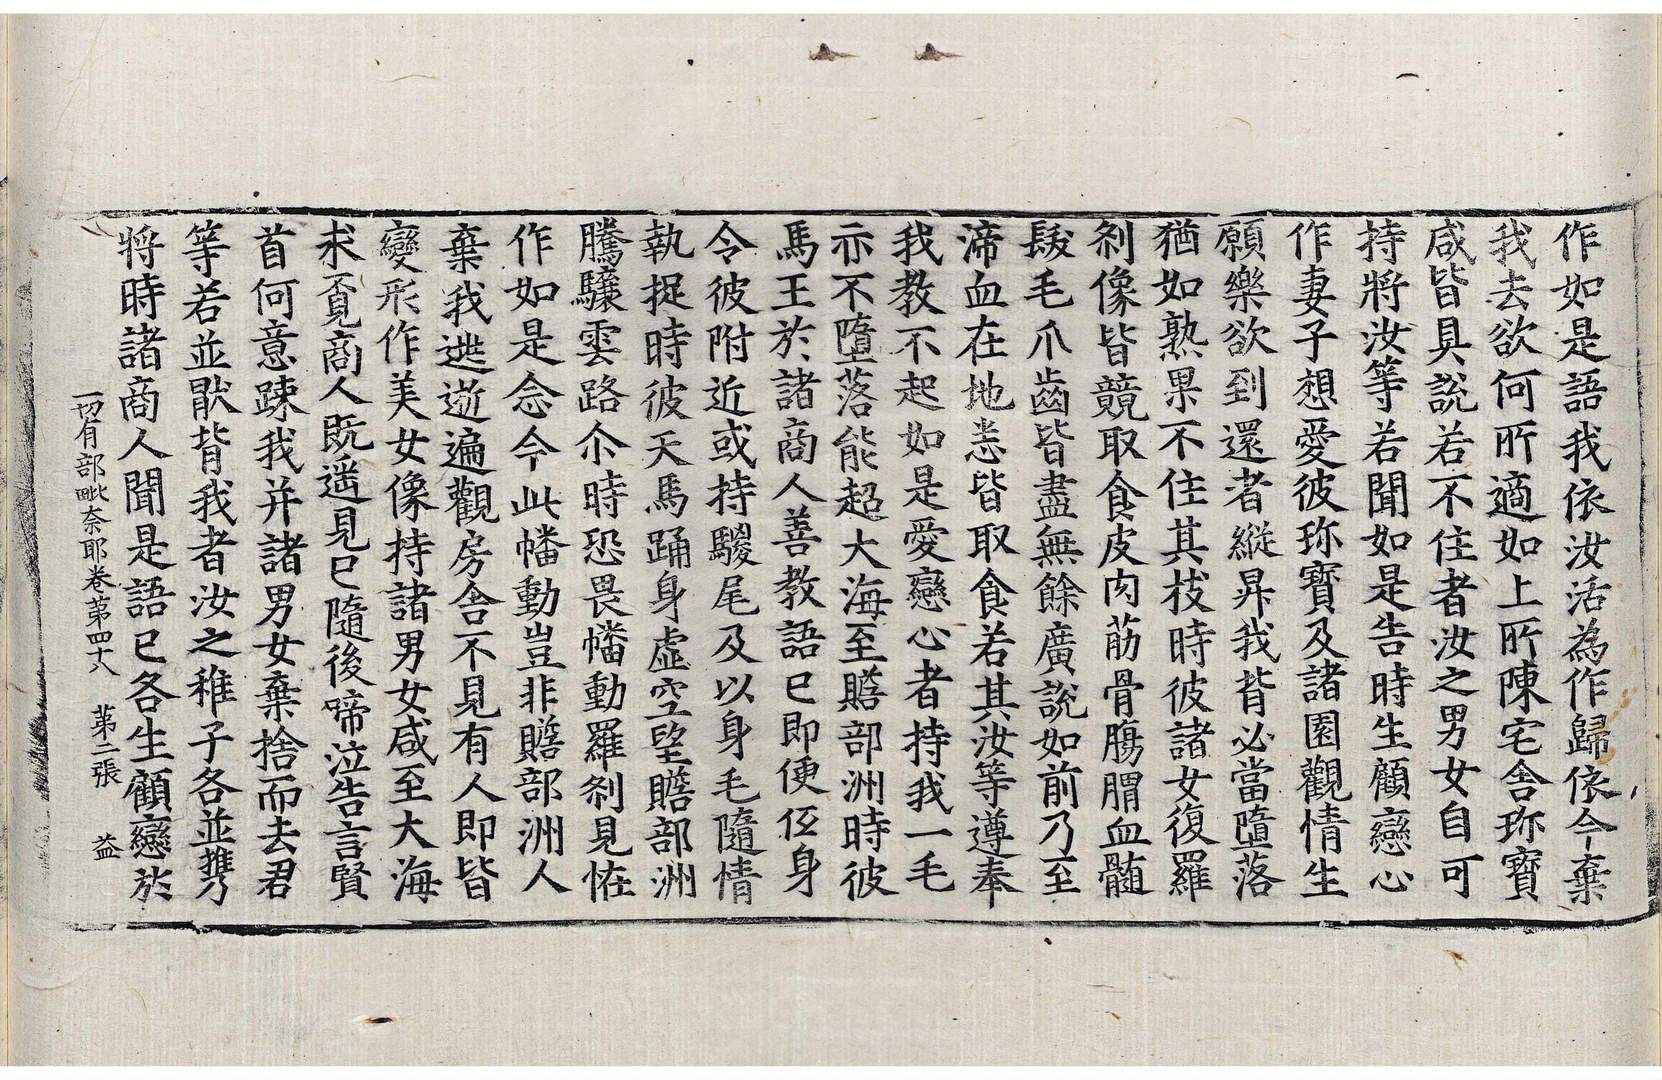 作如是語我依汝活為作歸依今棄
我去欲何所適如上所陳宅舍珎寳
咸皆具說若不住者汝之男女自可
持將汝等若聞如是告時生顧戀心
作妻子想愛彼珎寳及諸園觀情生
願樂欲到還者縱昇我背必當墮落
猶如熟果不住其枝時彼諸女復羅
刹像皆競取食皮肉筋骨腸胃血髓
髮毛爪齒皆盡無餘廣說如前乃至
渧血在地悉皆取食若其汝等遵奉
我教不起如是愛戀心者持我一毛
亦不墮落能超大海至贍部洲時彼
馬王於諸商人善教語已即便伍身
令彼附近或持騣尾及以身毛隨情
執捉時彼天馬踊身虛空望贍部洲
騰驤雲路尒時恐畏幡動羅刹見恠
作如是念今此幡動豈非贍部洲人
棄我逃逝遍觀房舍不見有人即皆
變形作美女像持諸男女咸至大海
求覔商人既遥見已隨後啼泣告言賢
首何意踈我并諸男女棄捨而去君
等若並猒背我者汝之稚子各並携
將時諸商人聞是語已各生顧戀於
一切有部毗奈耶卷第四十八 第二張 益